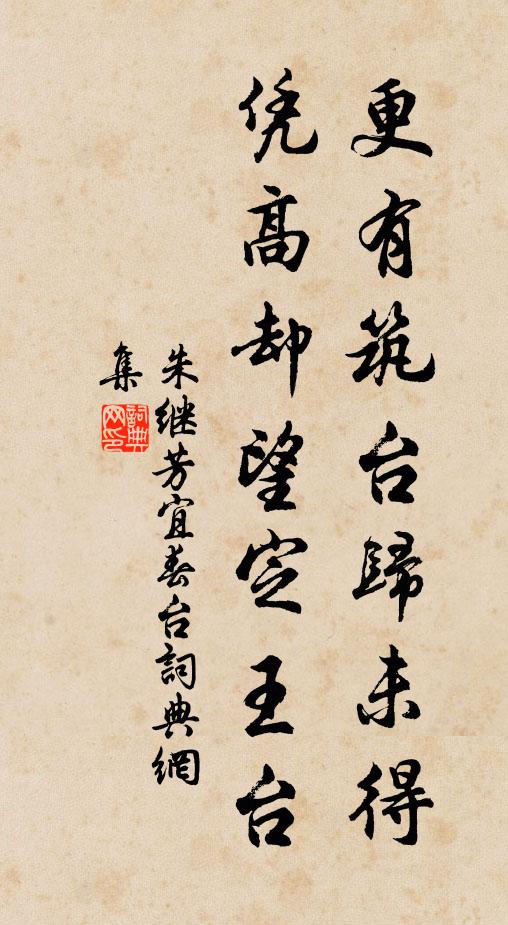 更有筑台歸未得
凭高却望定王台
朱继芳宜春台詞典網
集
詞典
网印